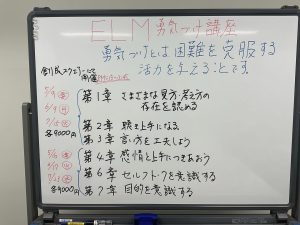 ELM勇気づけ講座
勇気づけとは困難を克服する
活力を与えることです。
創成スクエアーにて
開催
5/9 第1章 さまざまな見方・考え方の
存在を認める
第2章 聴き上手になる
各9000円 第3章 言い方を工夫しよう
第4章 感情と上手につきあおう
第6章 セルフトークを意識する
各9000円 第7章 目的を意識する